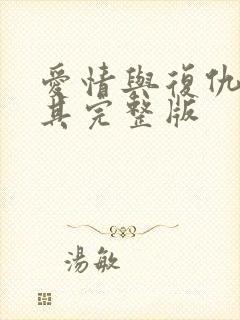 愛情與復仇
其完整版
湯敏